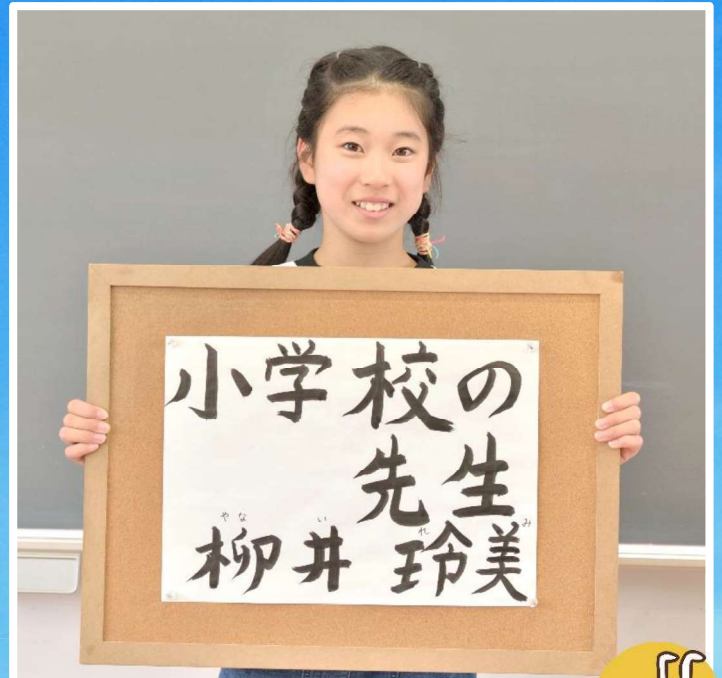 小学校の
先生
やな い れ み
柳井 玲美